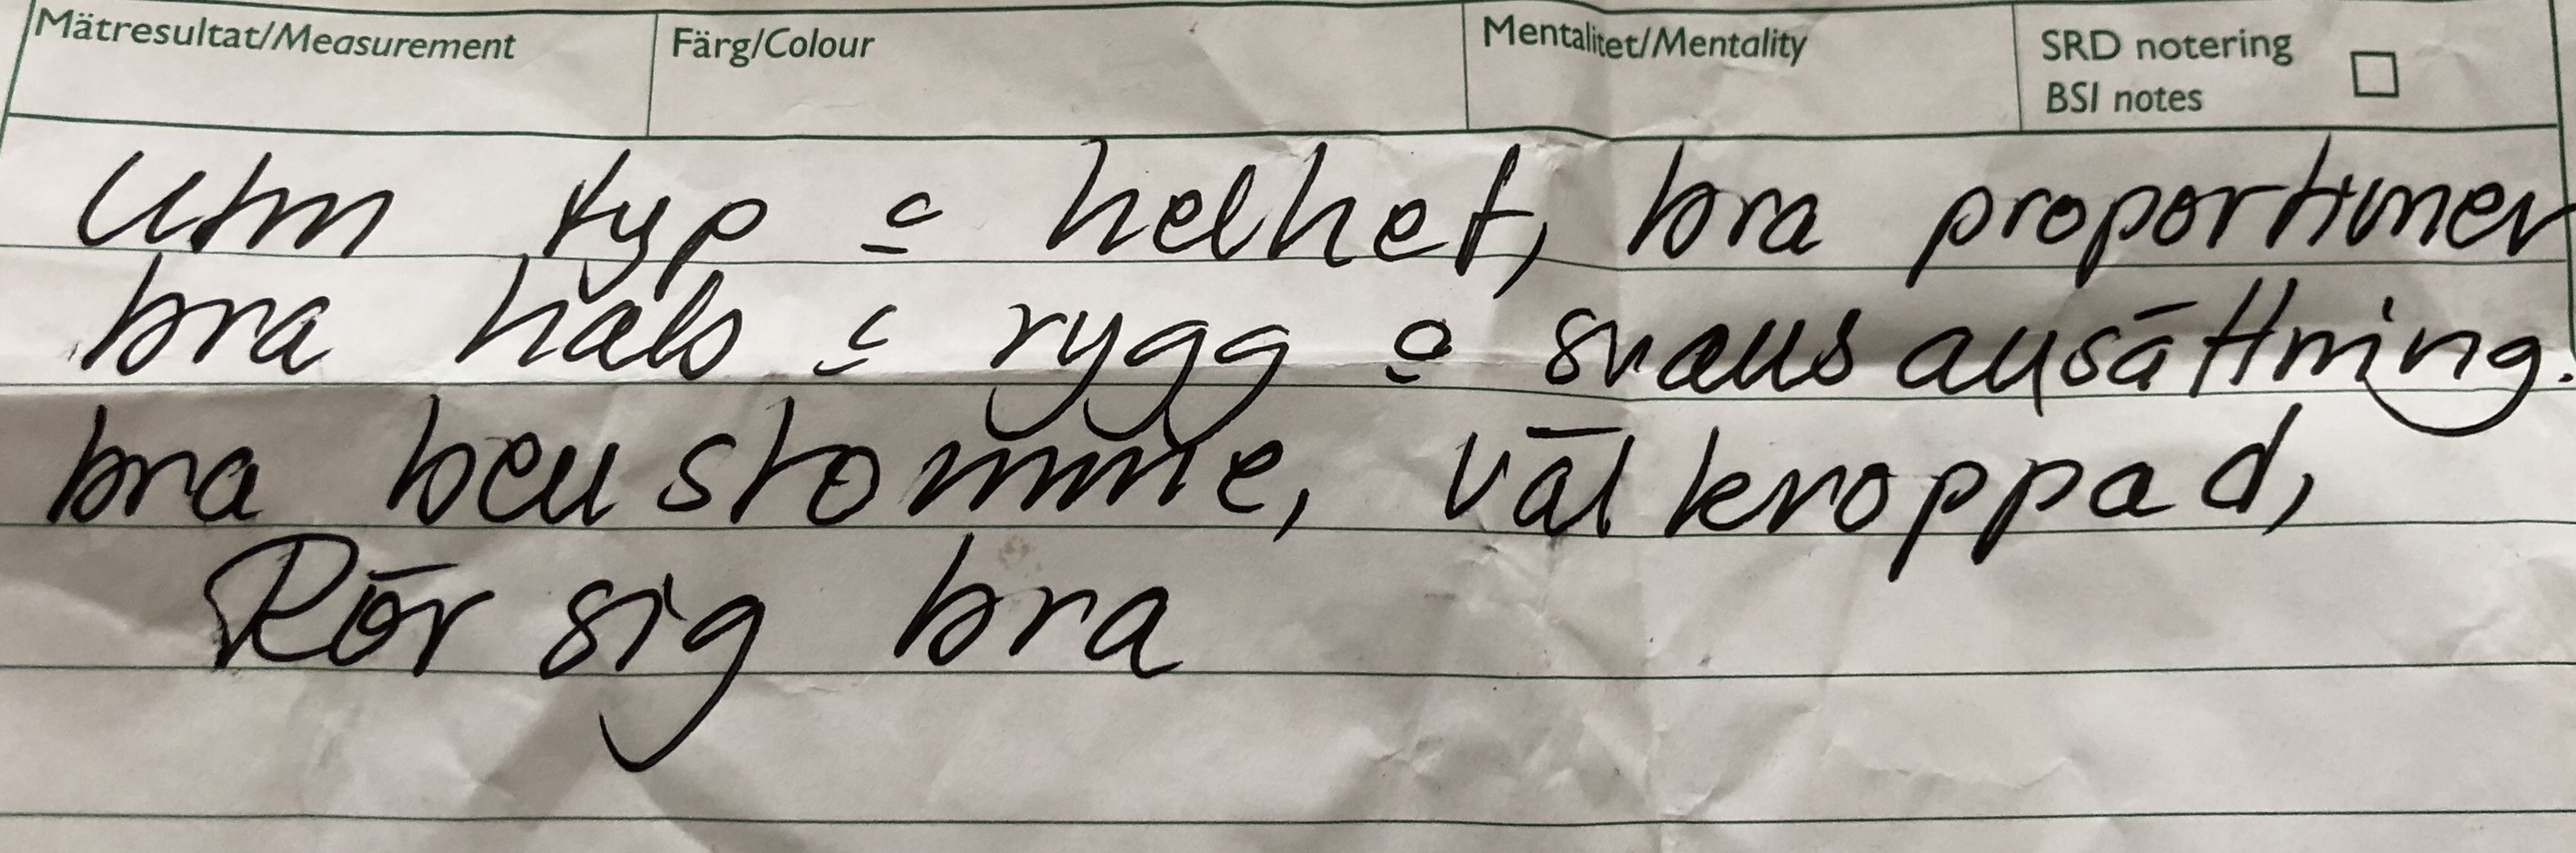 Mätresultat/Measurement Färg/Colour Mentalitet/Mentality SRD notering
BSI notes
Utm typ o helhet, bra proportioner
bra hals o rygg o svansansättning.
bra benstomme, välkroppad,
Rör sig bra